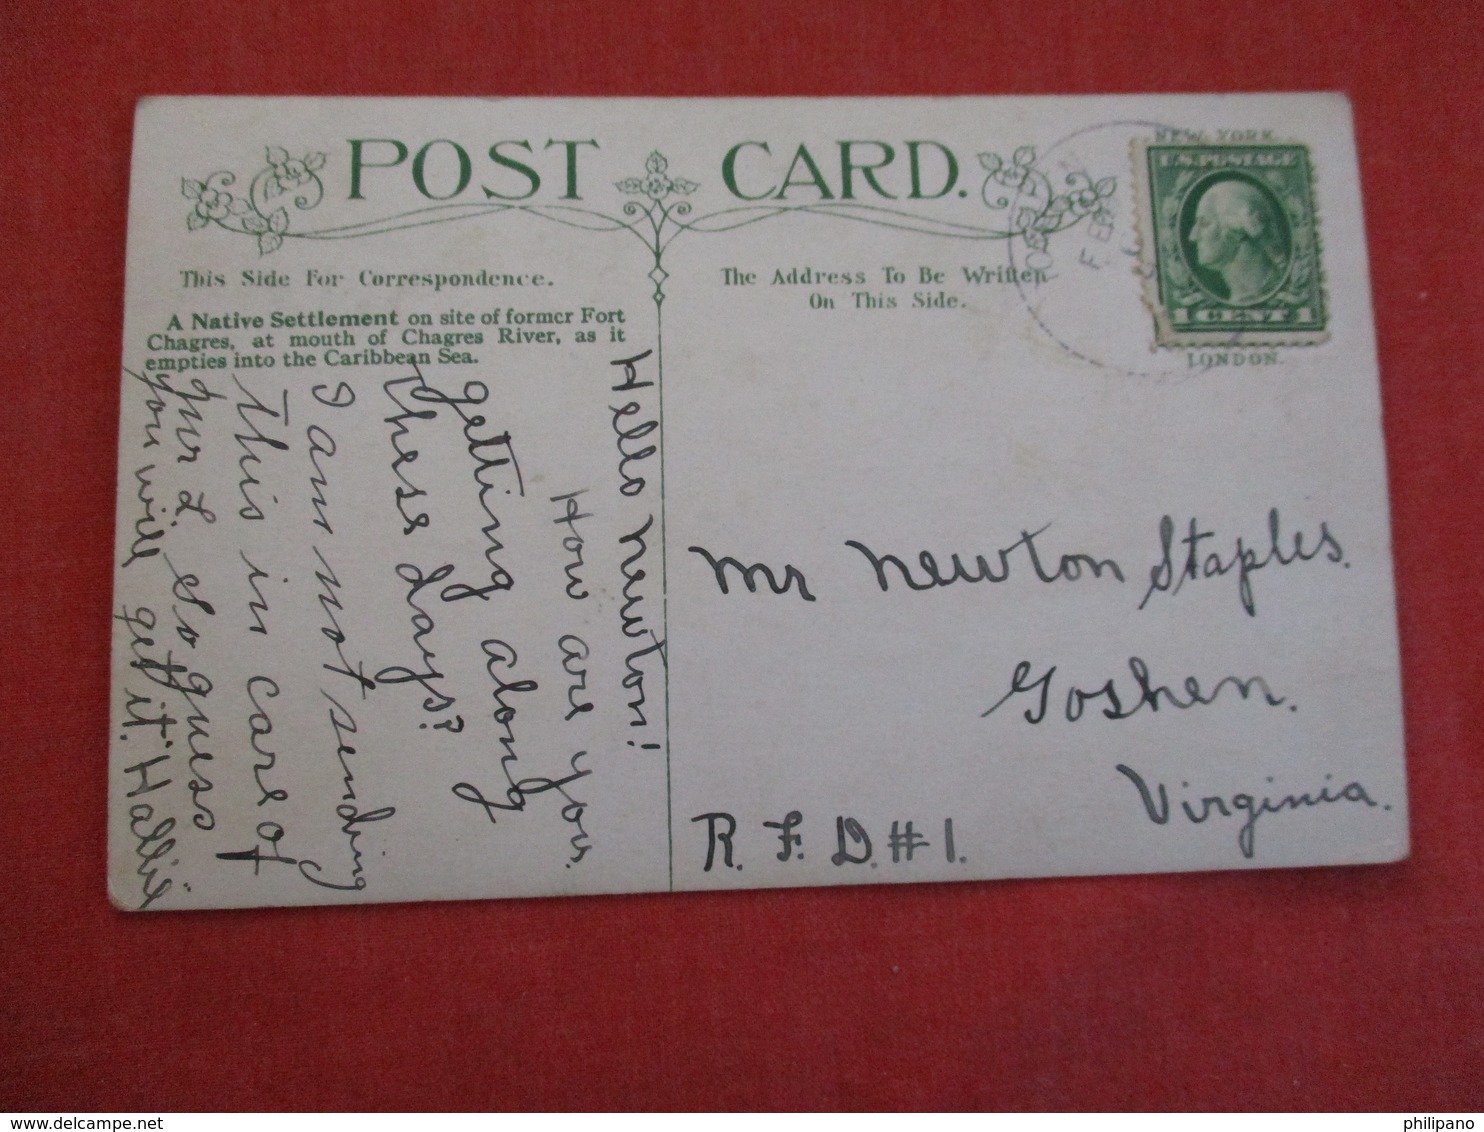 POST CARD.
This Side For Correspondence.
The Address To Be Written
On This Side.
A Native Settlement on site of former Fort
Chagres, at mouth of Chagres River, as it
empties into the Caribbean Sea.
Hello Newton!
How are you
getting along
these days?
I am not sending
this in care of
L. So guess
you will get it. Hallie
NEW YORK
U.S. POSTAGE
1 CENT 1
LONDON.
FEB
Mr Newton Staples.
Goshen.
Virginia.
R. F. D. #1.
www.delcampe.net
philipano